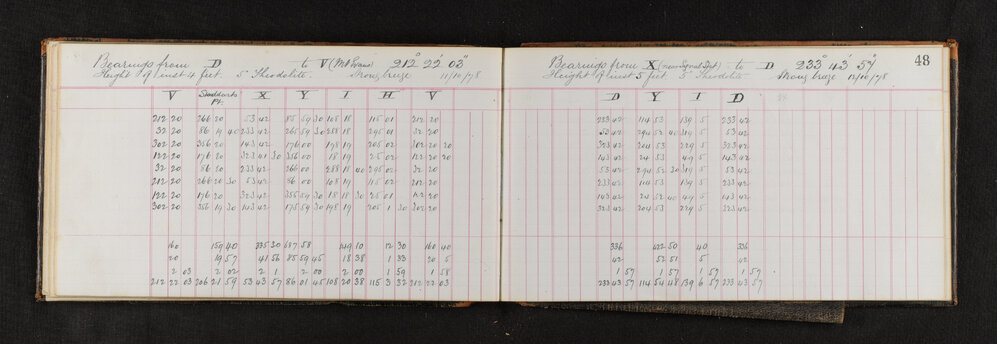 Bearings from D to V (Mt Evans) 212° 22' 03"
Height of inst 4 feet. 5" Theodolite. Strong breeze 11/10/78
V Stoddarts Pt. X Y I H V
212 20 266 20 53 42 85 59 30 108 18 115 01 212 20
32 20 86 19 40 233 42 265 59 30 288 18 295 01 32 20
302 20 356 20 143 42 176 00 198 19 205 02 302 20 20
122 20 176 20 323 41 30 356 00 18 19 25 02 122 20 20
32 20 86 20 233 42 266 00 288 18 40 295 02 32 20
212 20 266 20 30 53 42 86 00 108 19 115 02 212 20
122 20 176 20 323 42 355 59 30 18 18 30 25 01 122 20
302 20 356 19 30 143 42 175 59 30 198 19 205 1 30 302 20
160 159 40 335 30 149 10 12 30 160 40
20 19 57 41 56 85 59 45 18 38 1 33 20 5
2 03 2 02 2 1 2 00 2 00 1 59 1 58
212 22 03 206 21 59 53 43 57 86 01 45 108 20 38 115 3 32 212 22 03
Bearings from X (near Signal Stn) to D 233° 43' 57" 48
Height of inst 5 feet 5" Theodolite Strong breeze 12/10/78
D Y I D
233 42 114 53 139 5 233 42
53 42 294 52 40 319 5 53 42
323 42 204 53 229 5 323 42
143 42 24 53 49 5 143 42
53 42 294 52 30 319 5 53 42
233 42 114 53 139 5 233 42
143 42 24 52 40 49 5 143 42
323 42 204 53 229 5 323 42
336 422 50 40 336
42 52 51 5 42
1 57 1 57 1 57 1 57
233 43 57 114 54 48 139 6 57 233 43 57